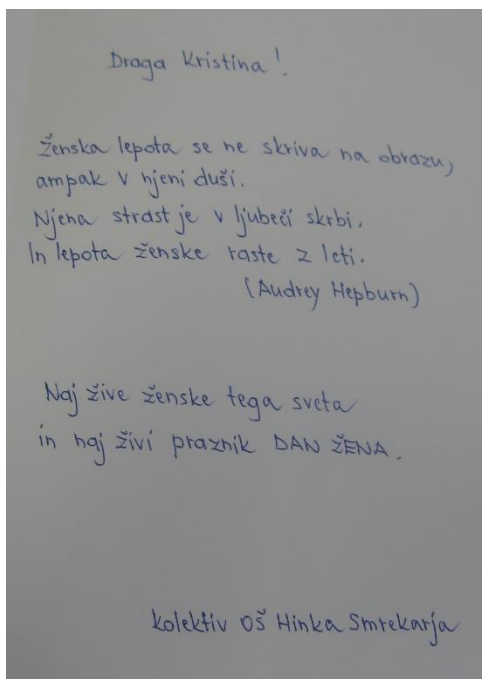 Draga Kristina!
Ženska lepota se ne skriva na obrazu,
ampak v njeni duši.
Njena strast je v ljubeči skrbi.
In lepota ženske raste z leti.
(Audrey Hepburn)
Naj žive ženske tega sveta
in naj živi praznik DAN ŽENA.
kolektiv OŠ Hinka Smrekarja